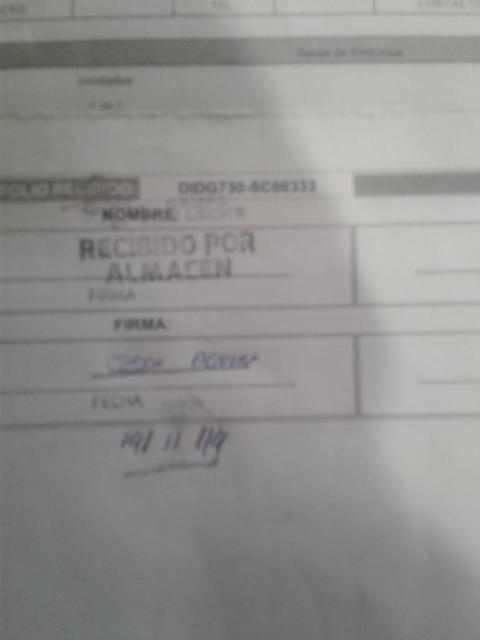 CTO TEL. CONTACTO
Datos de Embalaje
Unidades
1 de 1
FOLIO RECIBIDO DIDG730-SC00333
NOMBRE
RECIBIDO POR
ALMACEN
FIRMA
FIRMA:
FECHA
19/11/19